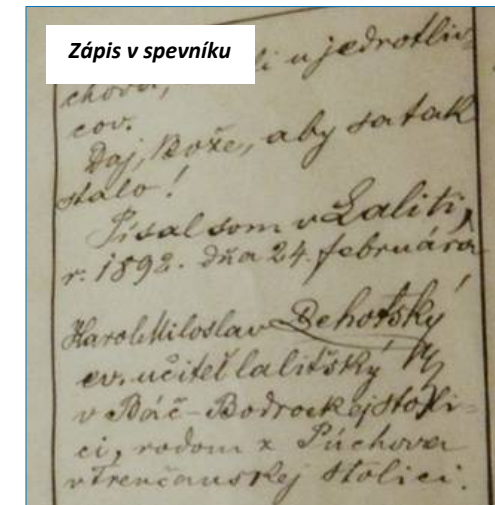 Zápis v spevníku
u jedrotliv-
chova,
cov.
Daj, Bože, aby sa tak
stalo!
Písal som v Laliti,
r. 1892. dňa 24. februára
Karol Miloslav Lehotský
ev. učiteľ lalitský
v Báč-Bodrockej stoli-
ci, rodom z Púchova
v Trenčanskej stolici.